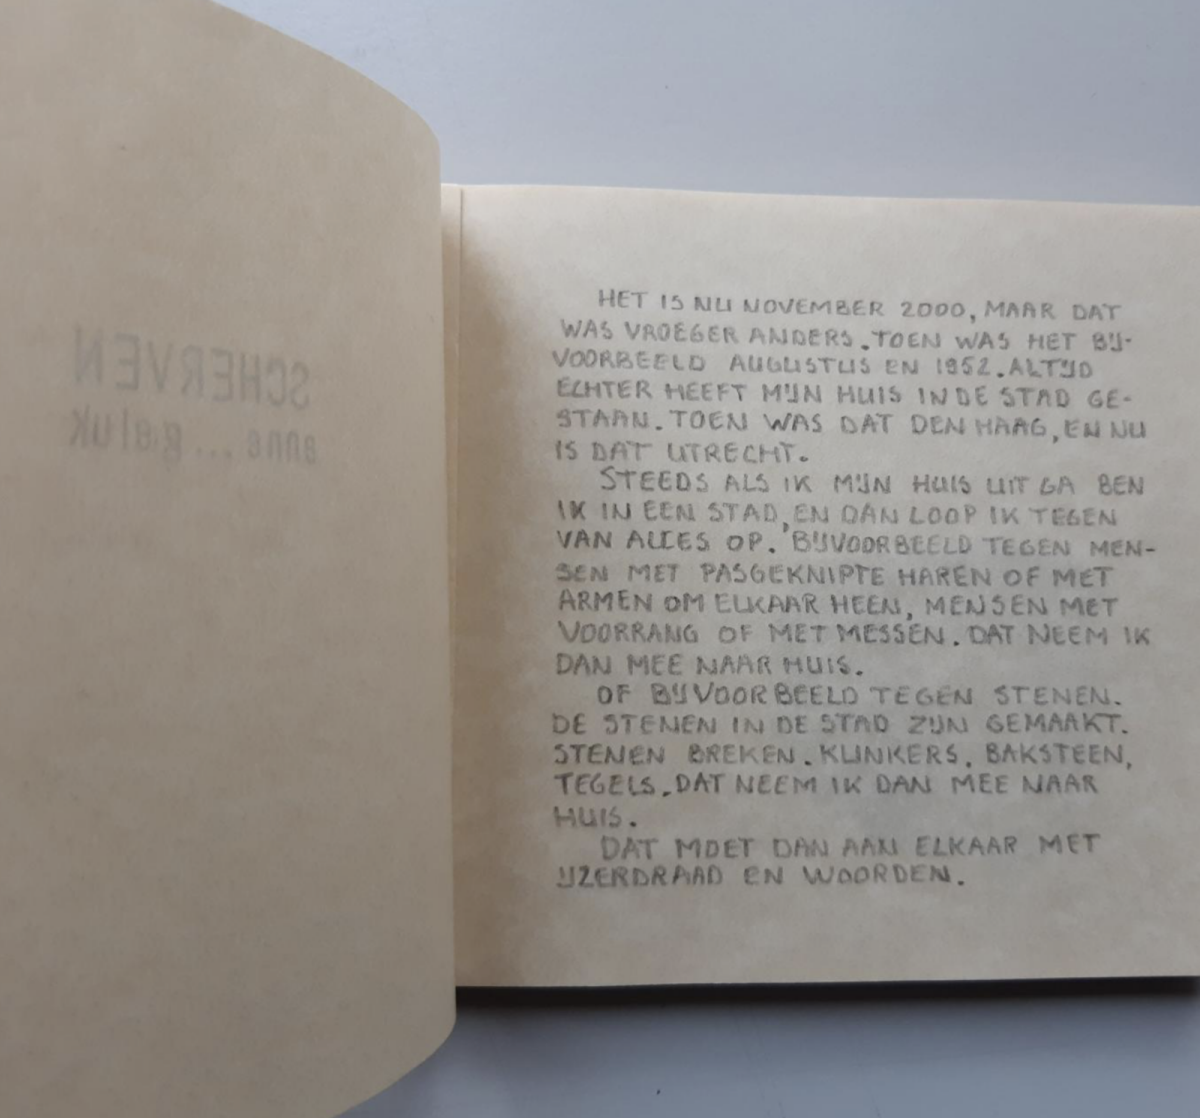 SCHERVEN
anne ... geluk
HET IS NU NOVEMBER 2000, MAAR DAT
WAS VROEGER ANDERS. TOEN WAS HET BIJ-
VOORBEELD AUGUSTUS EN 1952. ALTIJD
ECHTER HEEFT MIJN HUIS IN DE STAD GE-
STAAN. TOEN WAS DAT DEN HAAG, EN NU
IS DAT UTRECHT.
STEEDS ALS IK MIJN HUIS UIT GA BEN
IK IN EEN STAD, EN DAN LOOP IK TEGEN
VAN ALLES OP. BIJVOORBEELD TEGEN MEN-
SEN MET PASGEKNIPTE HAREN OF MET
ARMEN OM ELKAAR HEEN, MENSEN MET
VOORRANG OF MET MESSEN. DAT NEEM IK
DAN MEE NAAR HUIS.
OF BIJVOORBEELD TEGEN STENEN.
DE STENEN IN DE STAD ZIJN GEMAAKT.
STENEN BREKEN. KLINKERS, BAKSTEEN,
TEGELS. DAT NEEM IK DAN MEE NAAR
HUIS.
DAT MOET DAN AAN ELKAAR MET
IJZERDRAAD EN WOORDEN.